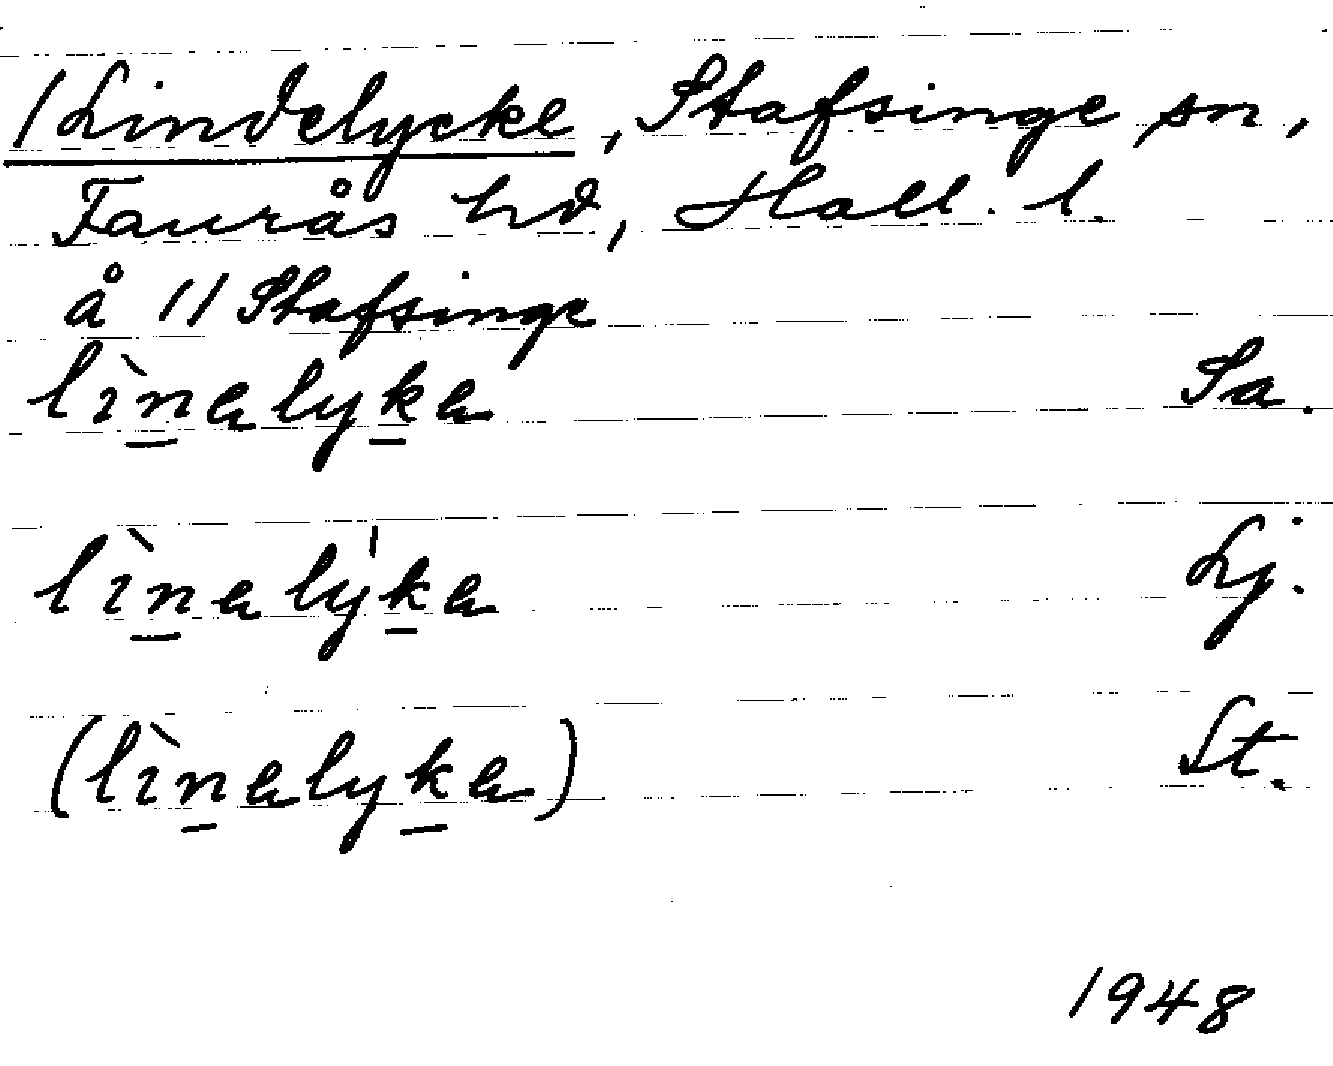 /Lindelycke, Stafsinge sn,
Faurås hd, Hall. l.
å // Stafsinge
lìn̲alyk̲a Sa.
lìn̲aly'k̲a Lj.
(lìn̲alyk̲a) St.
1948